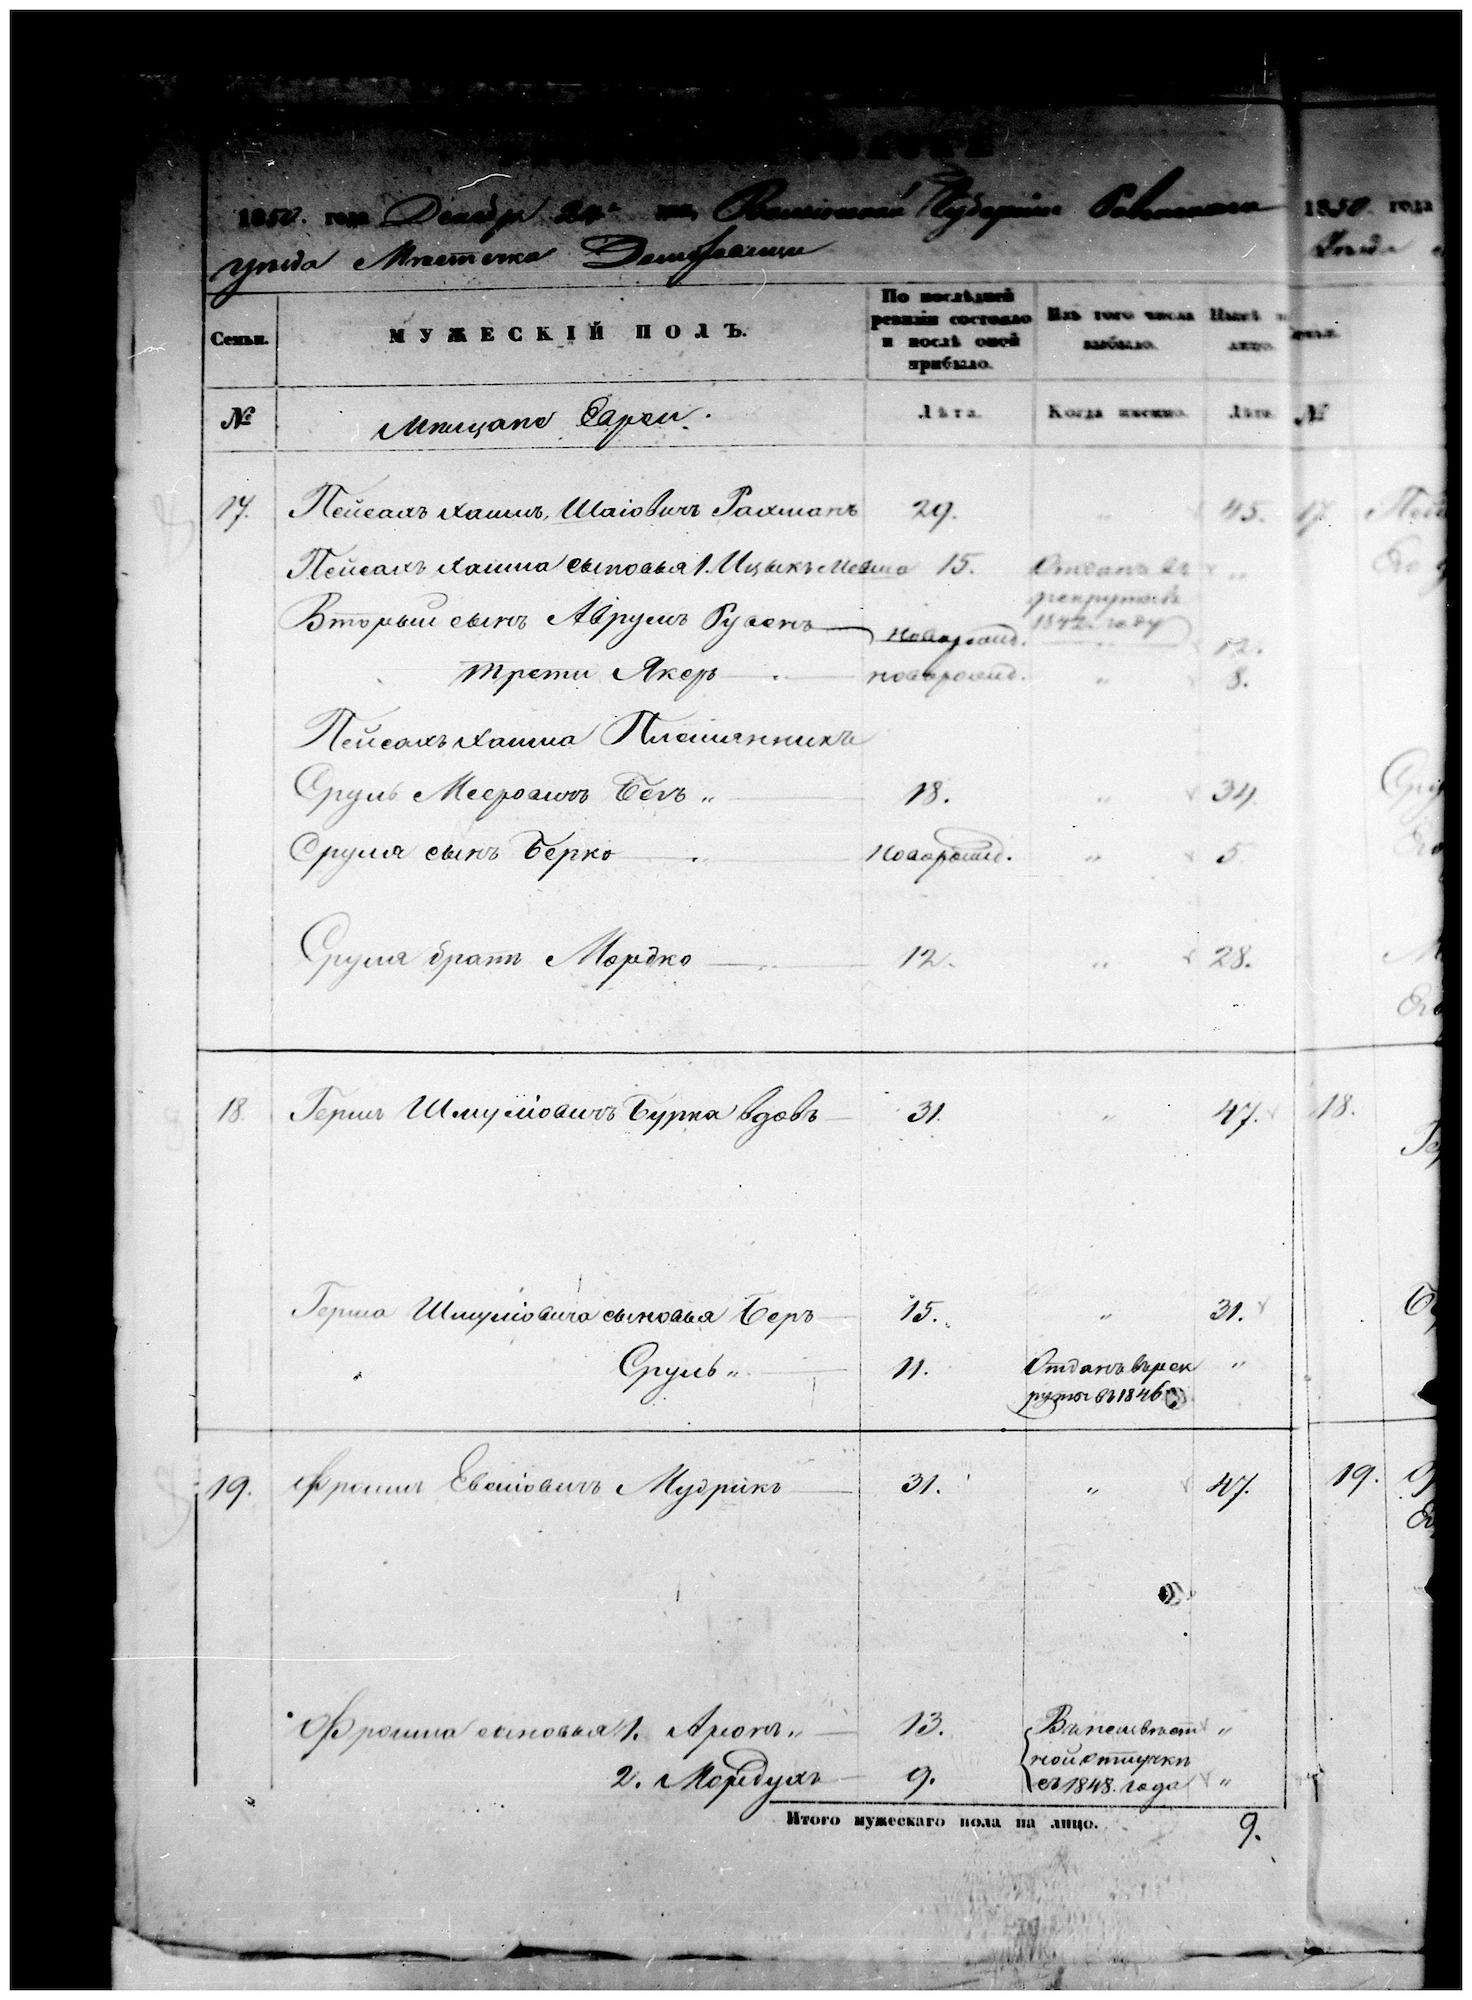 1850. года Декабря 24 дня, Волынской Губернiи Ровенского
уѣзда Мѣстечка Домбровицы
1850 года
Уѣзда
Семьи.
МУЖЕСКIЙ ПОЛЪ.
По послѣдней ревизiи состояло и послѣ оной прибыло.
Изъ того числа выбыло.
Нынѣ на лицо.
№
Мѣщане Евреи.
Лѣта.
Когда именно.
Лѣта.
№
17. Пейсахъ Хаимъ, Шаiовичъ Рахманъ 29. " 45. 17.
Пейсахъ Хаима сыновья 1. Ицыкъ 15. Отданъ въ "
рекруты въ
1842. году
Вторый сынъ Аврумъ Рувенъ новорожд. " 12.
трети Якеръ новорожд. " 8.
Пейсахъ Хаима Племянники
Сруль Мееровичъ Бегъ " 18. " 34
Сруля сынъ Берко " новорожд. " 5
Сруля братъ Мордко " 12. " 28.
18 Гершъ Шмулiовичъ Бурка вдовъ 31. " 47. 18.
Герша Шмулiовича сыновья Беръ 15. " 31.
Сруль " 11. Отданъ въ рек "
руты въ 1846
19. Фроимъ Евелiовичъ Мудрикъ 31. " 47. 19.
Фроима сыновья 1. Аронъ " 13. Въ неизвѣст "
ной отлучкѣ
2. Мордухъ 9. съ 1848. года "
Итого мужескаго пола на лицо. 9.